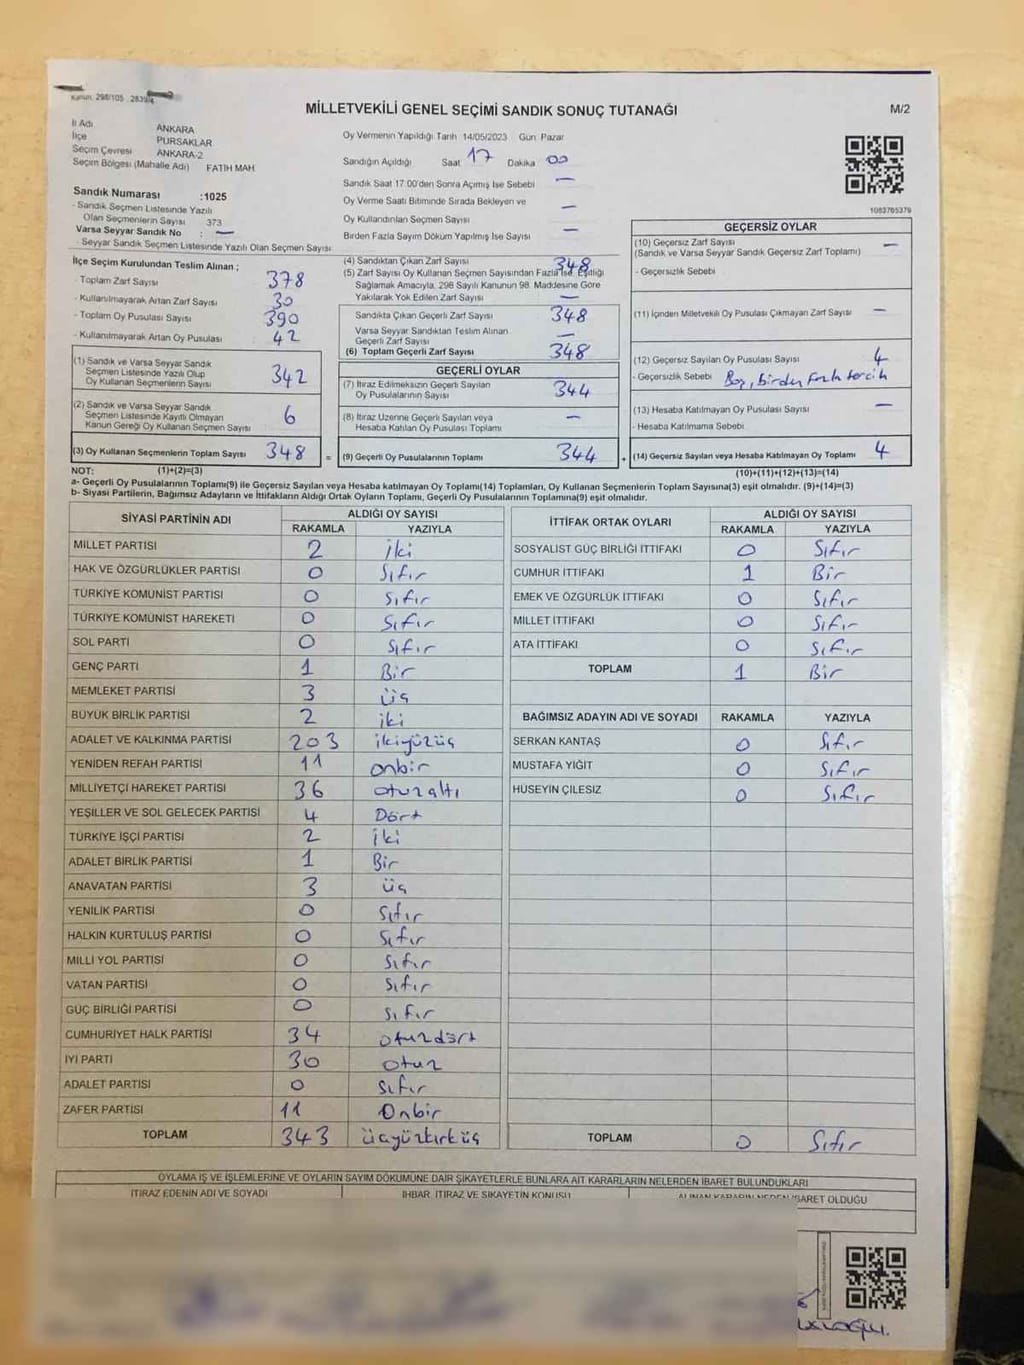 Kanun, 298/105 , 2839/4
MİLLETVEKİLİ GENEL SEÇİMİ SANDIK SONUÇ TUTANAĞI
M/2
İl Adı ANKARA
İlçe PURSAKLAR
Seçim Çevresi ANKARA-2
Seçim Bölgesi (Mahalle Adı) FATİH MAH
Oy Vermenin Yapıldığı Tarih 14/05/2023 Gün Pazar
Sandığın Açıldığı Saat 17 Dakika 00
Sandık Saat 17.00'den Sonra Açımış İse Sebebi —
Oy Verme Saati Bitiminde Sırada Bekleyen ve
Oy Kullandırılan Seçmen Sayısı —
Birden Fazla Sayım Döküm Yapılmış İse Sayısı —
1083765379
Sandık Numarası :1025
- Sandık Seçmen Listesinde Yazılı
Olan Seçmenlerin Sayısı 373
Varsa Seyyar Sandık No : —
- Seyyar Sandık Seçmen Listesinde Yazılı Olan Seçmen Sayısı
İlçe Seçim Kurulundan Teslim Alınan ;
- Toplam Zarf Sayısı 378
- Kullanılmayarak Artan Zarf Sayısı 30
- Toplam Oy Pusulası Sayısı 390
- Kullanılmayarak Artan Oy Pusulası 42
(1) Sandık ve Varsa Seyyar Sandık
Seçmen Listesinde Yazılı Olup
Oy Kullanan Seçmenlerin Sayısı 342
(2) Sandık ve Varsa Seyyar Sandık
Seçmen Listesinde Kayıtlı Olmayan
Kanun Gereği Oy Kullanan Seçmen Sayısı 6
(3) Oy Kullanan Seçmenlerin Toplam Sayısı 348 =
(4) Sandıktan Çıkan Zarf Sayısı 348
(5) Zarf Sayısı Oy Kullanan Seçmen Sayısından Fazla İse, Eşitliği
Sağlamak Amacıyla, 298 Sayılı Kanunun 98. Maddesine Göre
Yakılarak Yok Edilen Zarf Sayısı —
Sandıkta Çıkan Geçerli Zarf Sayısı 348
Varsa Seyyar Sandıktan Teslim Alınan
Geçerli Zarf Sayısı —
(6) Toplam Geçerli Zarf Sayısı 348
GEÇERLİ OYLAR
(7) İtiraz Edilmeksizin Geçerli Sayılan
Oy Pusulalarının Sayısı 344
(8) İtiraz Üzerine Geçerli Sayılan veya
Hesaba Katılan Oy Pusulası Toplamı —
(9) Geçerli Oy Pusulalarının Toplamı 344 +
GEÇERSİZ OYLAR
(10) Geçersiz Zarf Sayısı —
(Sandık ve Varsa Seyyar Sandık Geçersiz Zarf Toplamı)
- Geçersizlik Sebebi
(11) İçinden Milletvekili Oy Pusulası Çıkmayan Zarf Sayısı —
(12) Geçersiz Sayılan Oy Pusulası Sayısı 4
- Geçersizlik Sebebi Boş, birden fazla tercih
(13) Hesaba Katılmayan Oy Pusulası Sayısı —
- Hesaba Katılmama Sebebi
(14) Geçersiz Sayılan veya Hesaba Katılmayan Oy Toplamı 4
NOT: (1)+(2)=(3) (10)+(11)+(12)+(13)=(14)
a- Geçerli Oy Pusulalarının Toplamı(9) ile Geçersiz Sayılan veya Hesaba katılmayan Oy Toplamı(14) Toplamları, Oy Kullanan Seçmenlerin Toplam Sayısına(3) eşit olmalıdır. (9)+(14)=(3)
b- Siyasi Partilerin, Bağımsız Adayların ve İttifakların Aldığı Ortak Oyların Toplamı, Geçerli Oy Pusulalarının Toplamına(9) eşit olmalıdır.
SİYASİ PARTİNİN ADI ALDIĞI OY SAYISI
RAKAMLA YAZIYLA
MİLLET PARTİSİ 2 iki
HAK VE ÖZGÜRLÜKLER PARTİSİ 0 Sıfır
TÜRKİYE KOMÜNİST PARTİSİ 0 Sıfır
TÜRKİYE KOMÜNİST HAREKETİ 0 Sıfır
SOL PARTİ 0 Sıfır
GENÇ PARTİ 1 Bir
MEMLEKET PARTİSİ 3 üç
BÜYÜK BİRLİK PARTİSİ 2 iki
ADALET VE KALKINMA PARTİSİ 203 ikiyüzüç
YENİDEN REFAH PARTİSİ 11 onbir
MİLLİYETÇİ HAREKET PARTİSİ 36 otuzaltı
YEŞİLLER VE SOL GELECEK PARTİSİ 4 Dört
TÜRKİYE İŞÇİ PARTİSİ 2 iki
ADALET BİRLİK PARTİSİ 1 Bir
ANAVATAN PARTİSİ 3 üç
YENİLİK PARTİSİ 0 Sıfır
HALKIN KURTULUŞ PARTİSİ 0 Sıfır
MİLLİ YOL PARTİSİ 0 Sıfır
VATAN PARTİSİ 0 Sıfır
GÜÇ BİRLİĞİ PARTİSİ 0 Sıfır
CUMHURİYET HALK PARTİSİ 34 otuzdört
İYİ PARTİ 30 otuz
ADALET PARTİSİ 0 Sıfır
ZAFER PARTİSİ 11 Onbir
TOPLAM 343 üçyüzkırküç
İTTİFAK ORTAK OYLARI ALDIĞI OY SAYISI
RAKAMLA YAZIYLA
SOSYALİST GÜÇ BİRLİĞİ İTTİFAKI 0 Sıfır
CUMHUR İTTİFAKI 1 Bir
EMEK VE ÖZGÜRLÜK İTTİFAKI 0 Sıfır
MİLLET İTTİFAKI 0 Sıfır
ATA İTTİFAKI 0 Sıfır
TOPLAM 1 Bir
BAĞIMSIZ ADAYIN ADI VE SOYADI RAKAMLA YAZIYLA
SERKAN KANTAŞ 0 Sıfır
MUSTAFA YİĞİT 0 Sıfır
HÜSEYİN ÇİLESİZ 0 Sıfır
TOPLAM 0 Sıfır
OYLAMA İŞ VE İŞLEMLERİNE VE OYLARIN SAYIM DÖKÜMÜNE DAİR ŞİKAYETLERLE BUNLARA AİT KARARLARIN NELERDEN İBARET BULUNDUKLARI
İTİRAZ EDENİN ADI VE SOYADI İHBAR, İTİRAZ VE ŞİKAYETİN KONUSU ALINAN KARARIN NEDEN İBARET OLDUĞU